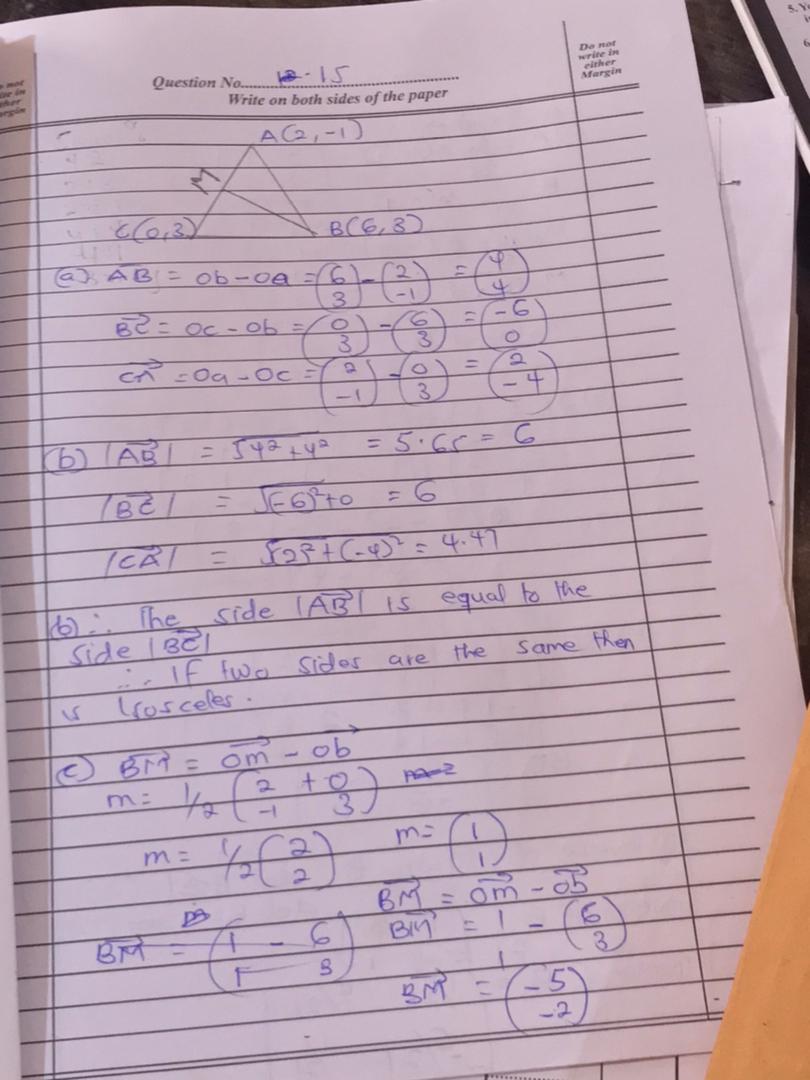 Question No. 15
Write on both sides of the paper
Do not
write in
either
Margin
A(2,-1)
M
C(0,3)
B(6,3)
(a) AB = ob - oa = (6 3) - (2 -1) = (4 4)
BC = oc - ob = (0 3) - (6 3) = (-6 0)
CA = oa - oc = (2 -1) - (0 3) = (2 -4)
(b) |AB| = √4²+4² = 5.65 = 6
|BC| = √(-6)²+0 = 6
|CA| = √2²+(-4)² = 4.47
(b) ∴ The side |AB| is equal to the
side |BC|
∴ If two sides are the same then
is Isosceles.
(c) BM = om - ob
m = 1/2 (2 + 0 -1 3)
m = 1/2 (2 2) m = (1 1)
BM = om - ob
BM = (1 - 6 1 3) BM = 1 1 - (6 3)
BM = (-5 -2)